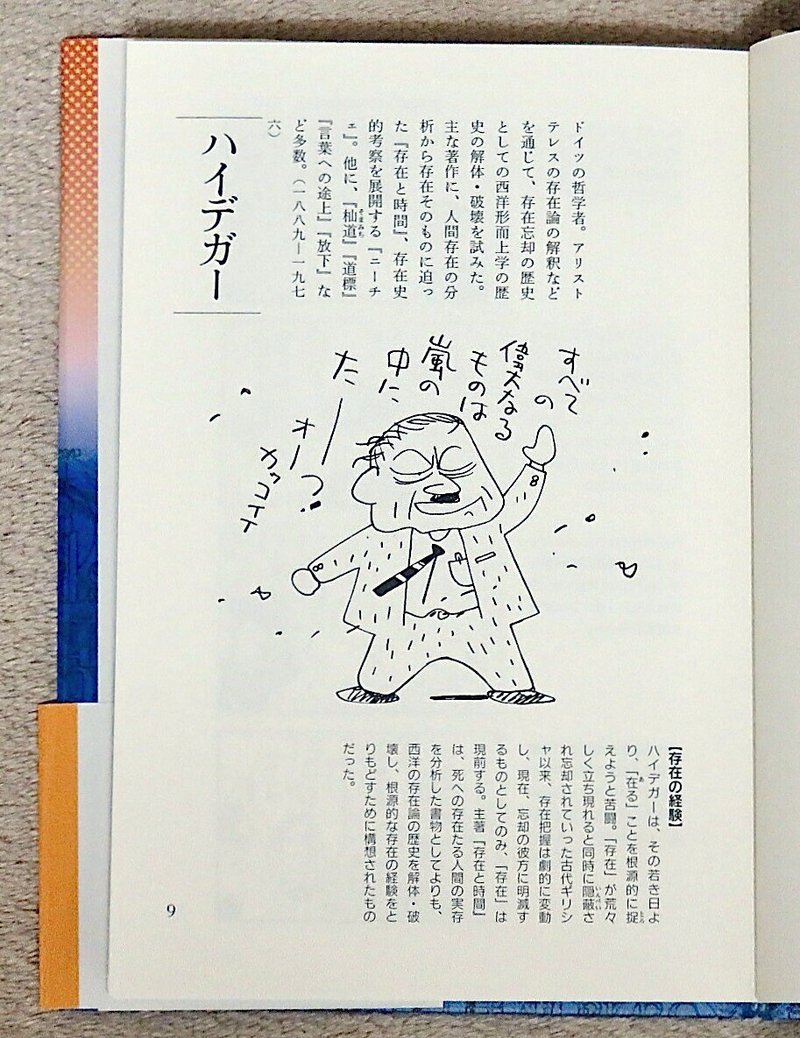 ハイデガー
ドイツの哲学者。アリスト
テレスの存在論の解釈など
を通じて、存在忘却の歴史
としての西洋形而上学の歴
史の解体・破壊を試みた。
主な著作に、人間存在の分
析から存在そのものに迫っ
た『存在と時間』、存在史
的考察を展開する『ニーチ
ェ』。他に、『杣道』『道標』
『言葉への途上』『放下』な
ど多数。(一八八九―一九七
六)
すべて
の
偉大なる
ものは
嵐の
中に
たー
オーっ!
カッコイイ
【存在の経験】
ハイデガーは、その若き日よ
り、「在る」ことを根源的に捉
えようと苦闘。「存在」が荒々
しく立ち現れると同時に隠蔽さ
れ忘却されていった古代ギリシ
ャ以来、存在把握は劇的に変動
し、現在、忘却の彼方に明滅す
るものとしてのみ、「存在」は
現前する。主著『存在と時間』
は、死への存在たる人間の実存
を分析した書物としてよりも、
西洋の存在論の歴史を解体・破
壊し、根源的な存在の経験をと
りもどすために構想されたもの
だった。
9